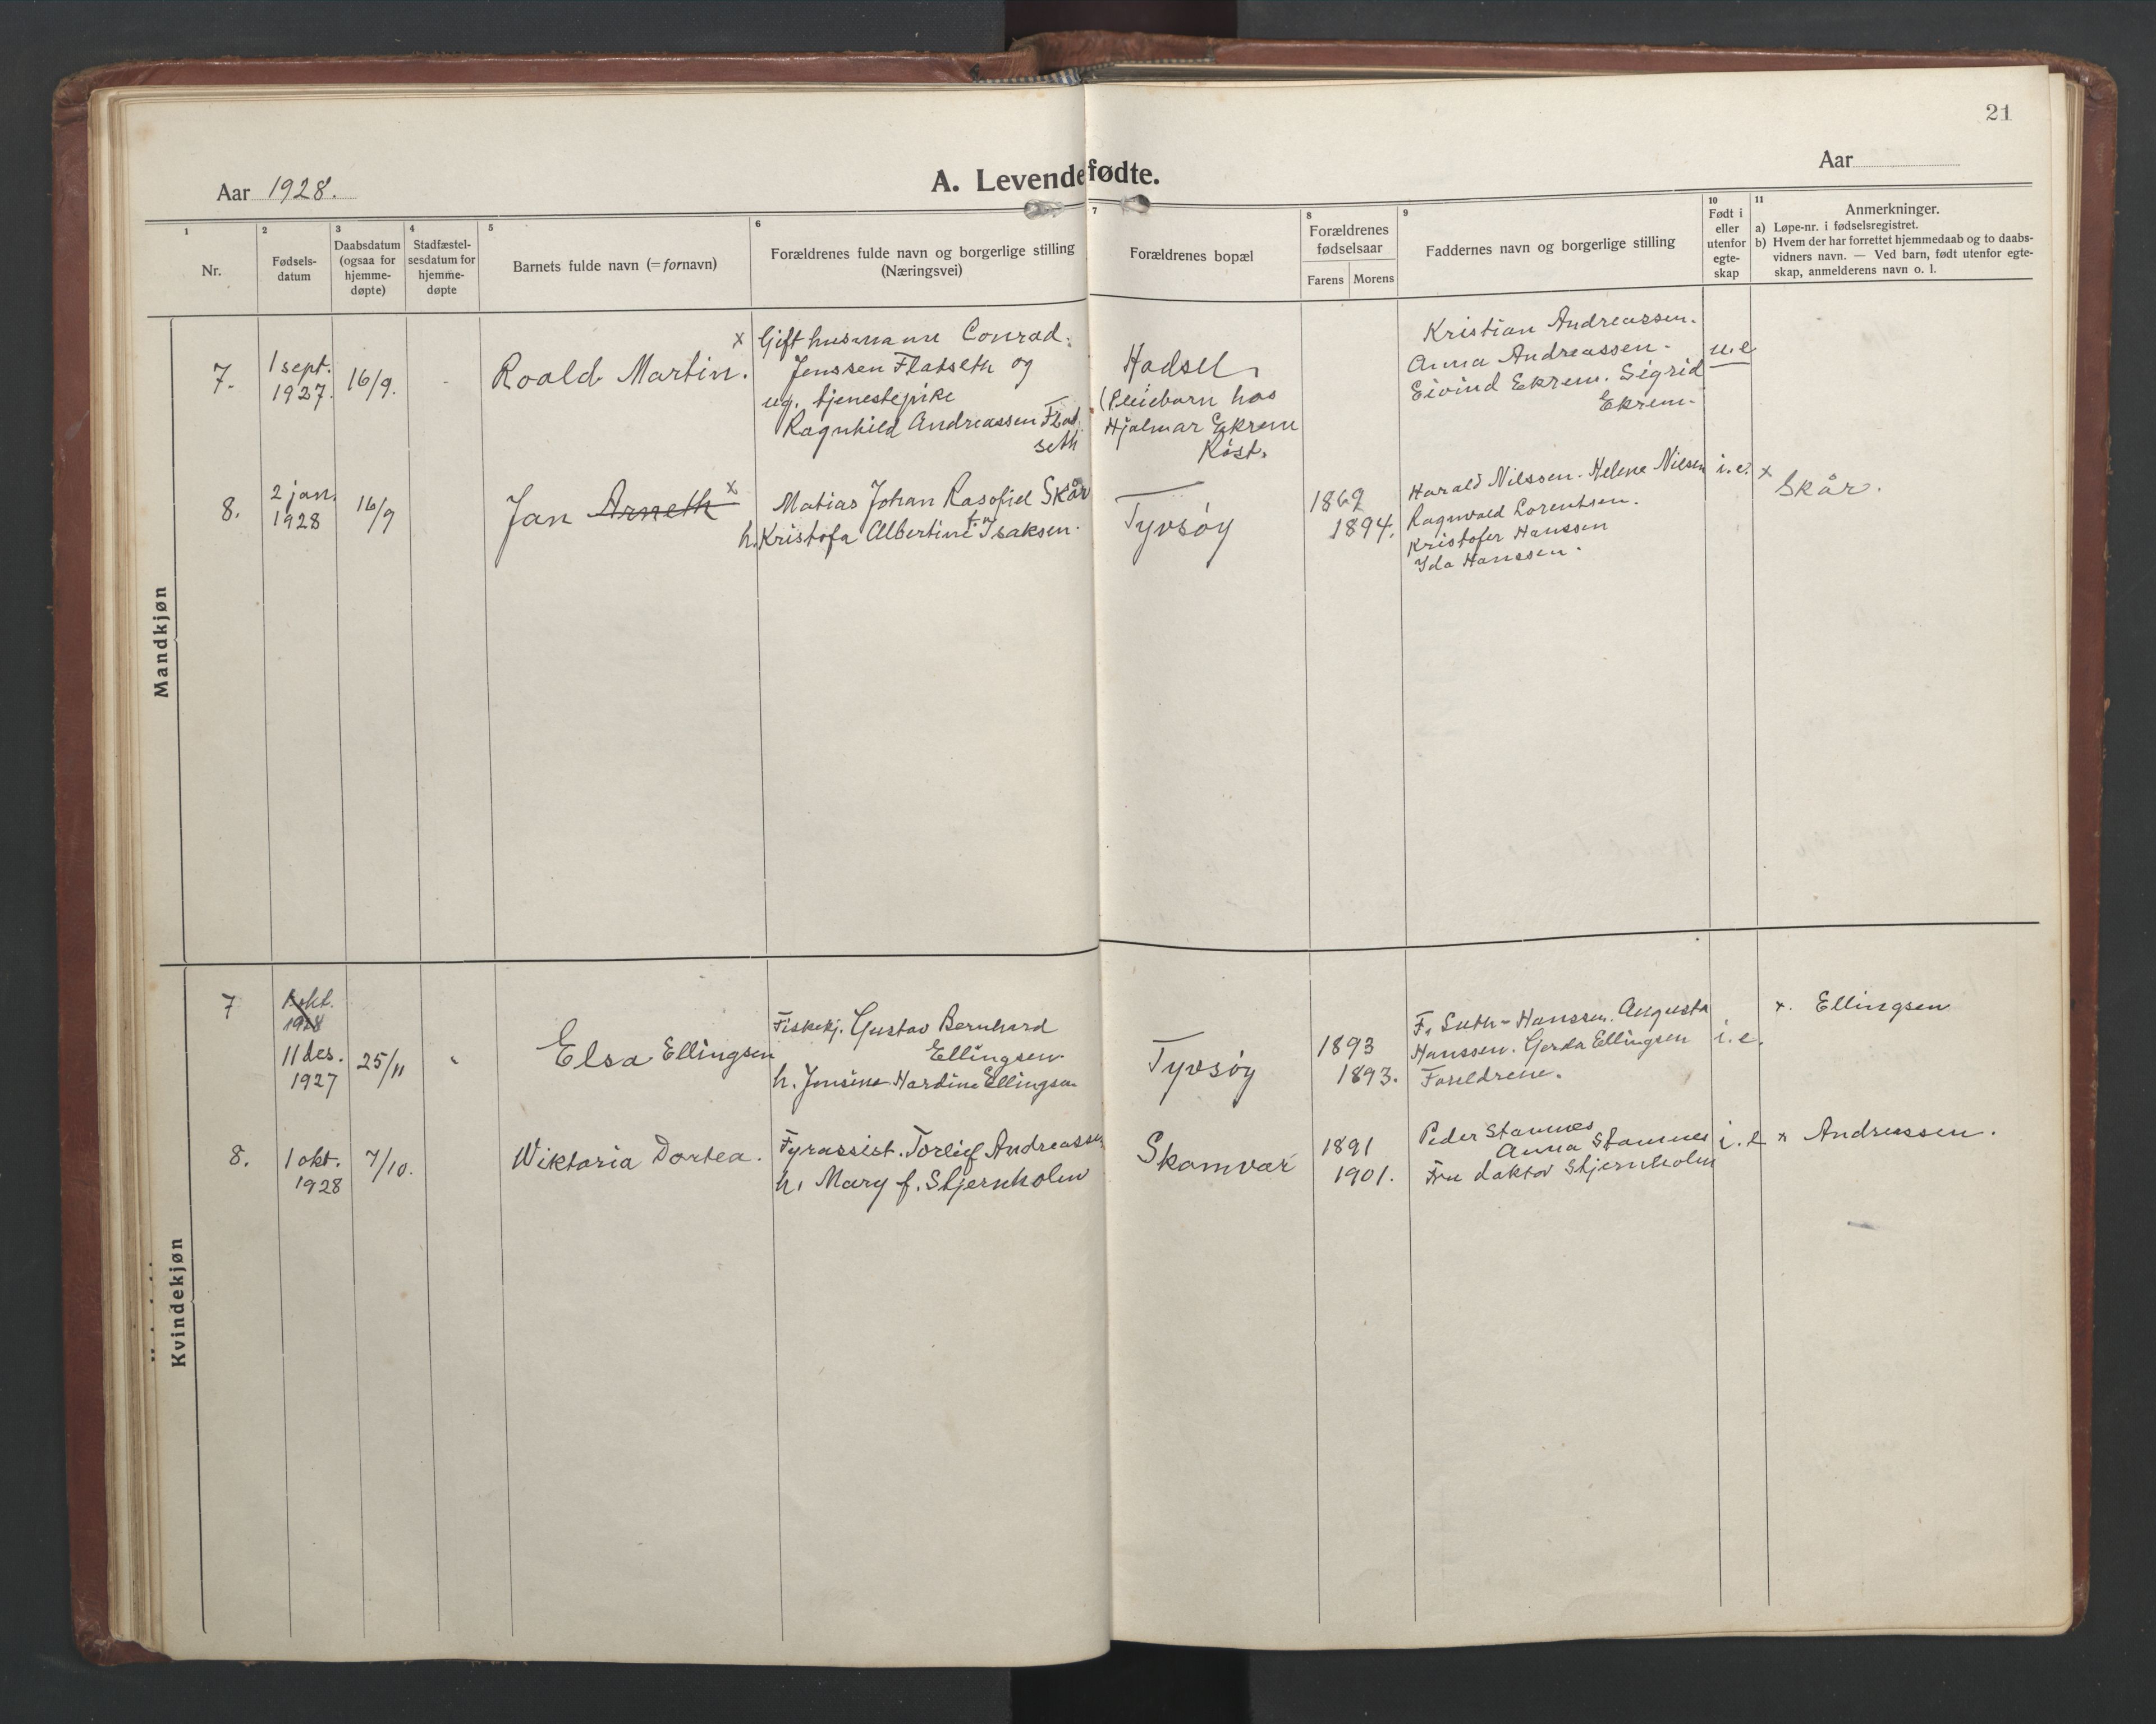 21
Aar 1928.
A. Levendefødte.
Aar
1
2
3
4
5
6
7
8
9
10
11
Nr.
Fødsels-
datum
Daabsdatum
(ogsaa for
hjemme-
døpte)
Stadfæstel-
sesdatum for
hjemme-
døpte
Barnets fulde navn (=fornavn)
Forældrenes fulde navn og borgerlige stilling
(Næringsvei)
Forældrenes bopæl
Forældrenes
fødselsaar
Farens
Morens
Faddernes navn og borgerlige stilling
Født i
eller
utenfor
egte-
skap
Anmerkninger.
a) Løpe-nr. i fødselsregistret.
b) Hvem der har forrettet hjemmedaab og to daabs-
vidners navn. — Ved barn, født utenfor egte-
skap, anmelderens navn o. l.
Mandkjøn
7.
1 sept.
1927.
16/9.
-
Roald Martin.
x Gift husmann Conrad
Jenssen Flatseth og
ug. tjenestepike
Ragnhild Andreassen Flat
seth
Hadsel
(Pleiebarn hos
Hjalmar Ekrem
Røst.
Kristian Andreassen.
Anna Andreassen.
Eivind Ekrem. Sigrid
Ekrem.
u.e
8.
2 jan.
1928
16/9
Jan Arneth x
Matias Johan Rasofiel Skår
h. Kristofa Albertine f. Isaksen.
Tyvsøy
1869
1894.
Harald Nilssen. Helene Nilsen
Ragnvald Lorentsen.
Kristofer Hanssen
Ida Hanssen.
i.e.
x Skår.
Kvindekjøn
7
1 okt.
1928
11 des.
1927
25/11
Elsa Ellingsen
Fiskekj. Gustav Bernhard
Ellingsen
h. Jensine Hardine Ellingsen
Tyvsøy
1893
1893.
F. Suth-Hanssen. Augusta
Hanssen. Gerda Ellingsen
Foreldrene.
i.e.
x. Ellingsen
8.
1 okt.
1928
7/10.
Wiktoria Dortea.
Fyrassist. Torleif Andreassen
h. Mary f. Stjernholm
Skomvær
1891
1901.
Peder Stavnes
Anna Stavnes
Fru doktor Stjernholm
i.e
x Andreassen.